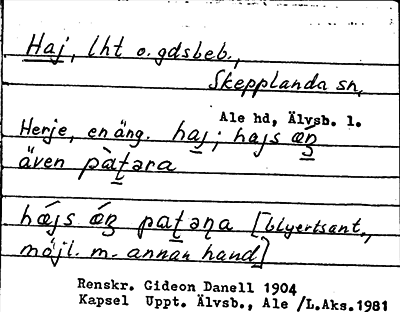 Haj, lht o. gdsbeb.,
Skepplanda sn,
Ale hd, Älvsb. l.
Herje, en äng. haj; hajs æŋ
även pàtəra
hæjs ǽŋ patəɳa [blyertsant.,
möjl. m. annan hand]
Renskr. Gideon Danell 1904
Kapsel Uppt. Älvsb., Ale /L.Aks.1981